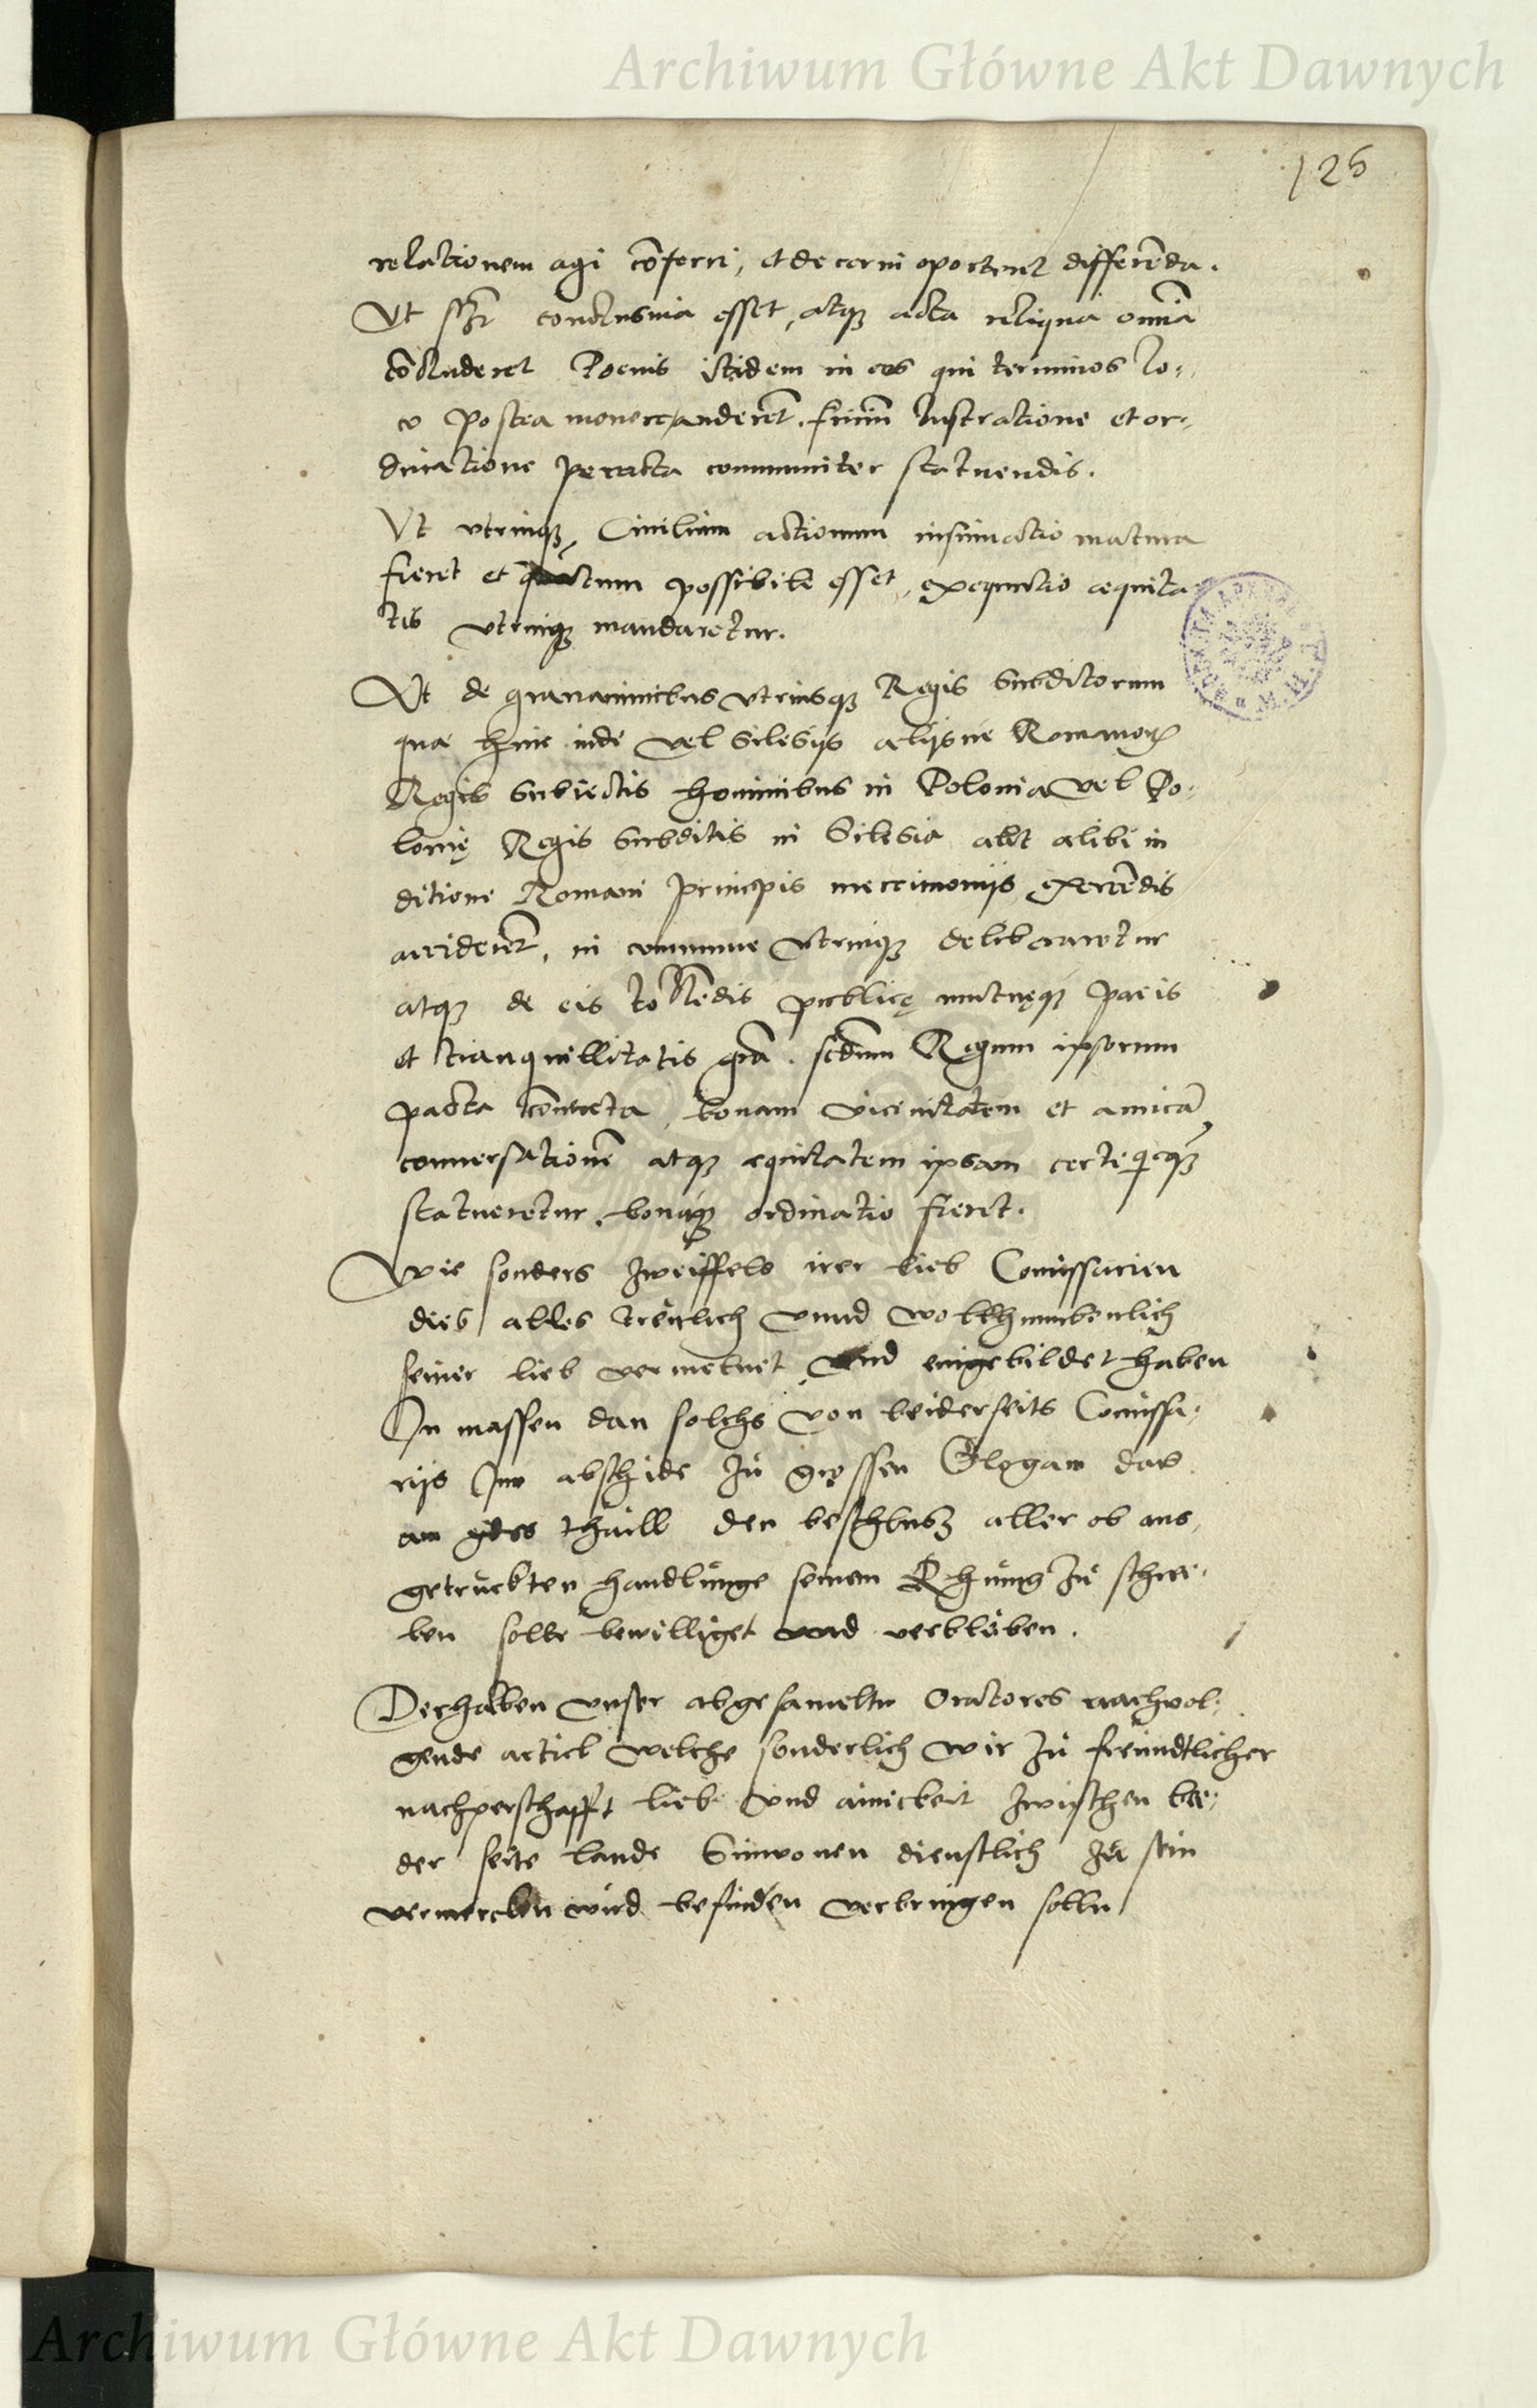 Archiwum Główne Akt Dawnych
125
relationem agi cōferri, et decerni oporteret differēda.
Ut conclusiva esset, atque acta reliqua omnia
cōcluderet Poenis itidem in eos qui terminos lo-
co postea monere auderēt. finium lustratione et or-
dinatione peracta communiter statuendis.
Vt utrinque Civilium actionum insinuatio matura
fieret et quātum possibile esset, exequutio aequita-
tis utrinque mandaretur.
Ut de gravaminibus utriusque Regis Subditorum
quae hinc inde vel Silesijs alijsve Romanorum
Regis Subiectis hominibus in Polonia vel Po-
lonię Regis Subditis in Silesia aut alibi in
ditione Romani principis mercimonijs exercēdis
acciderēt, in commune utrinque deliberaretur
atque de eis tollēdis publicę mutuęque pacis
et tranquillitatis grā. secundum Regum ipsorum
pacta conventa, bonam vicinitatem et amicā
conversationē atque equitatem ipsam certi
statueretur, bonaque ordinatio fieret.
Wie sonders zweiffels irer lieb Comissarien
dies alles treulich unnd
seiner lieb vermeldet und eingebildet haben
In massen dan solchs von beiderseits Comissa-
rijs Im abschide zu grossen Glogaw das
an ydes thaill den beschlusz aller ob aus-
getruckten handlunge seinem Khunig zu schrei-
ben solle bewilliget und verbliben.
Derhalben unser abgesanten Oratores nachvol-
gende artickl welche sonderlich wir zu freundtlicher
nachperschafft lieb und ainickeit zwischen bei-
der seite lande Einwonen dienstlich zu sein
vermercken und befinden verbringen sollen
Archiwum Główne Akt Dawnych